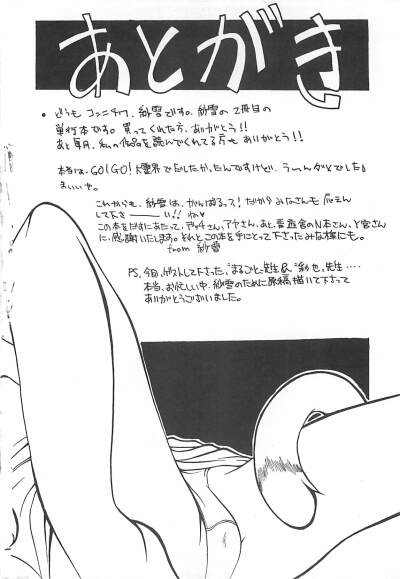 あとがき
• どうも コンニチワ、紗雪です。紗雪の 2冊目の
単行本です。買ってくれた方、ありがとう!!
あと毎月、私の作品を読んでくれてる方も ありがとう!!
本当は、GO!GO!大霊界でだしたかったんですけど、うーんダメでした♪
まぁいいや。
これからも、紗雪は、がんばるって! だから みなさんも 応えん
して下さ———い!! ね♥
この本をだすにあたって、アッチさん、アヤさん、あと、舎のN本さん、ど宮さん
に、感謝いたします。それと、この本を手にとって下さったみな様にも。
from 紗雪
PS, 今回、ゲストして下さった、"まるごと"先生&"彩也"先生‥‥
本当、お忙しい中、紗雪のために原稿描いて下さって
ありがとうございました。